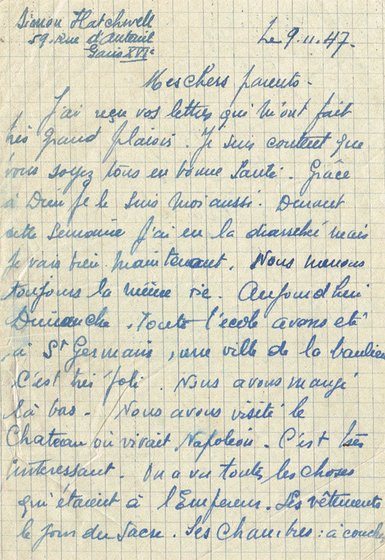 Simon Hatchwell
59. Rue d'Auteuil
Paris XVIe
Le 9.11.47.
Mes chers parents.
J'ai reçu vos lettres qui m'ont fait
très grand plaisir. Je suis content que
vous soyez tous en bonne santé. Grâce
à Dieu je le suis moi aussi. Durant
cette semaine j'ai eu la diarrhée mais
je vais bien maintenant. Nous menons
toujours la même vie. Aujourd'hui
Dimanche. Toute l'école avons été
à St Germain, une ville de la banlieue
C'est très joli. Nous avons mangé
là bas. Nous avons visité le
Chateau où vivait Napoléon. C'est très
intéressant. On a vu toutes les choses
qui étaient à l'Empereur. Ses vêtements
le jour du Sacre. Ses chambres : à coucher